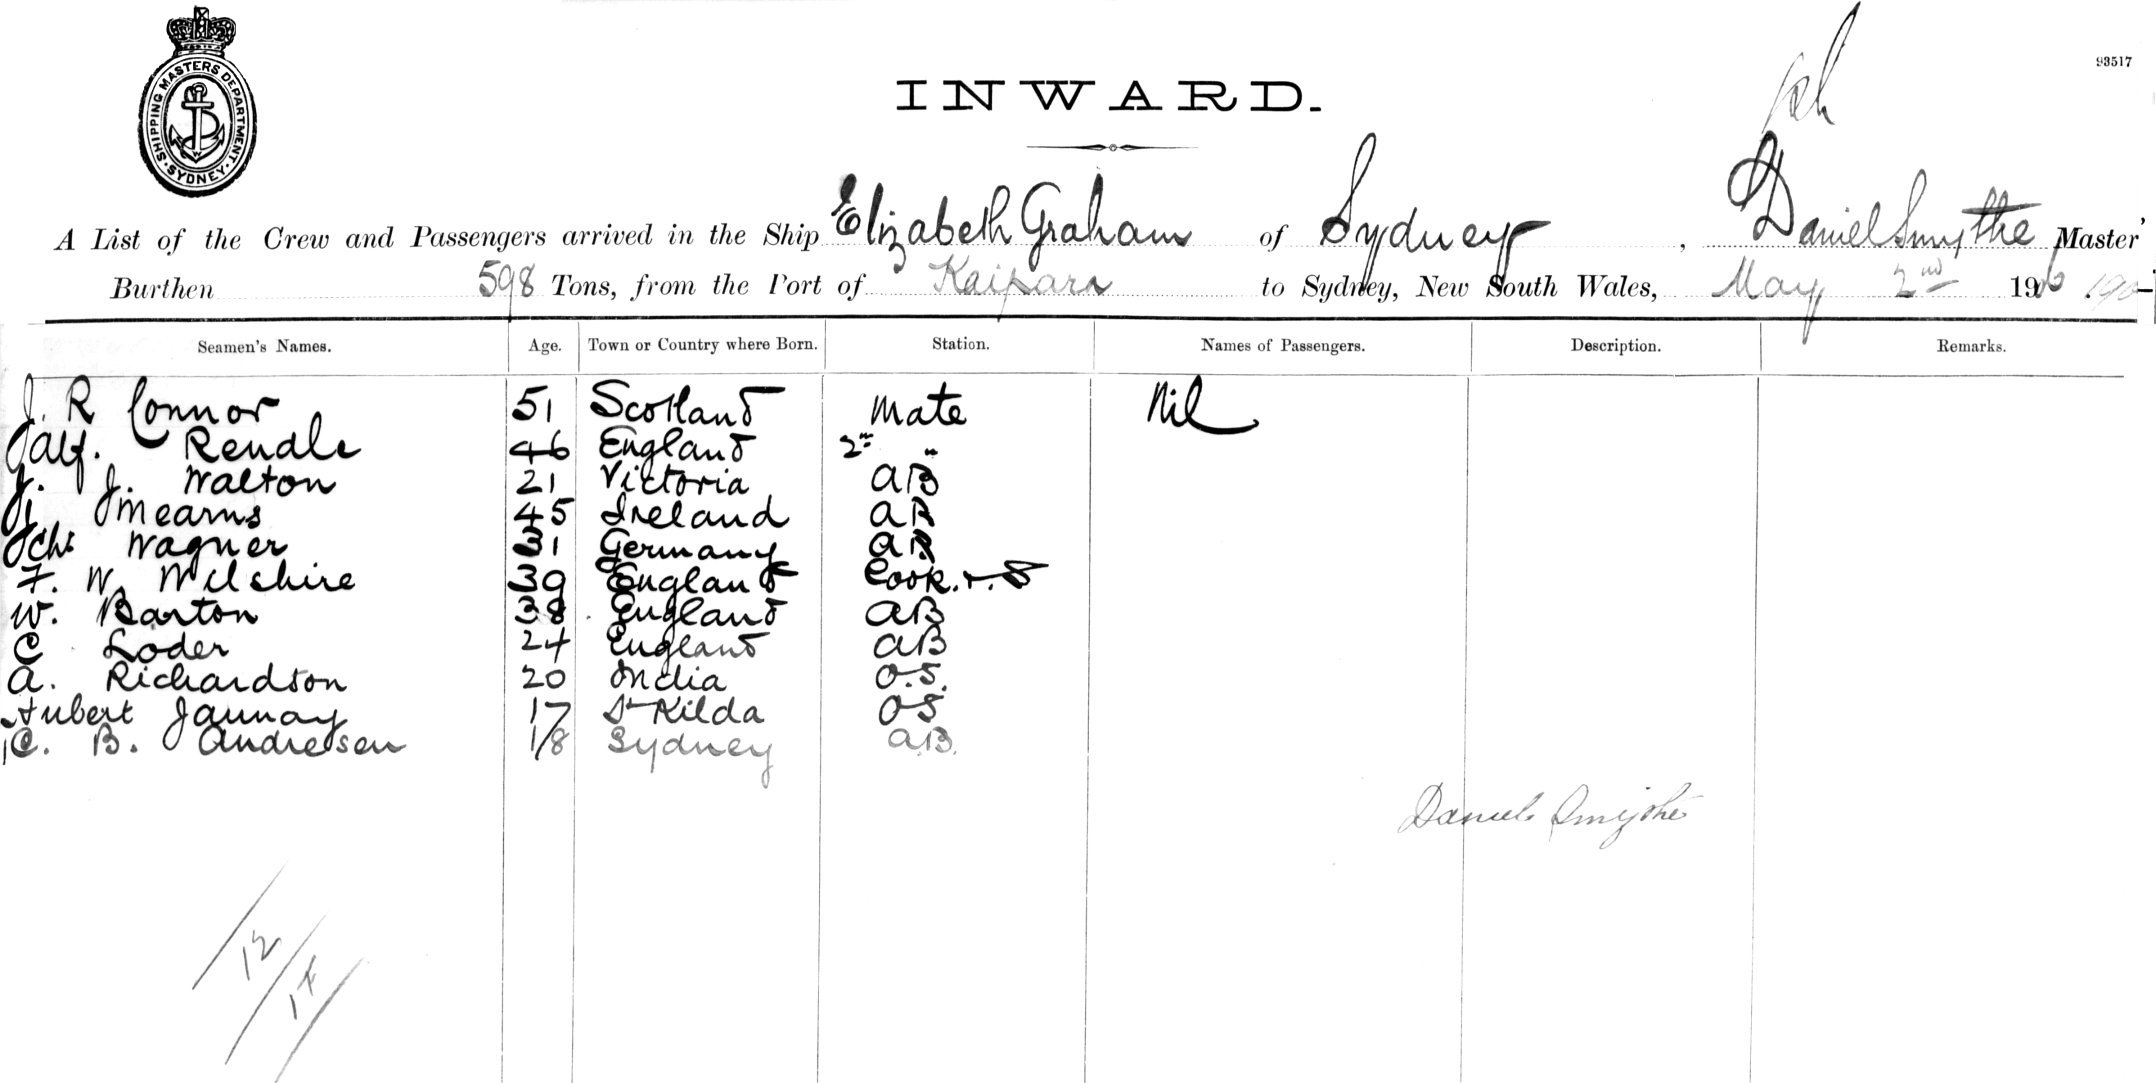 SHIPPING MASTERS DEPARTMENT. SYDNEY.
93517
INWARD.
A List of the Crew and Passengers arrived in the Ship Elizabeth Graham of Sydney, Daniel Smythe Master
Burthen 598 Tons, from the Port of Kaipara to Sydney, New South Wales, May 2nd 1906
Seamen's Names. Age. Town or Country where Born. Station. Names of Passengers. Description. Remarks.
J. R Connor 51 Scotland Mate Nil
Alf. Rendle 46 England 2nd "
J. J. Walton 21 Victoria AB
J Mearns 45 Ireland AB
Chs Wagner 31 Germany AB
F. W. Wilshire 39 England Cook & S
W. Barton 38 England AB
C Loder 24 England AB
A. Richardson 20 India O.S.
Hubert Jaunay 17 St Kilda OS
C. B. Andresen 18 Sydney AB.
Daniel Smythe
12
14